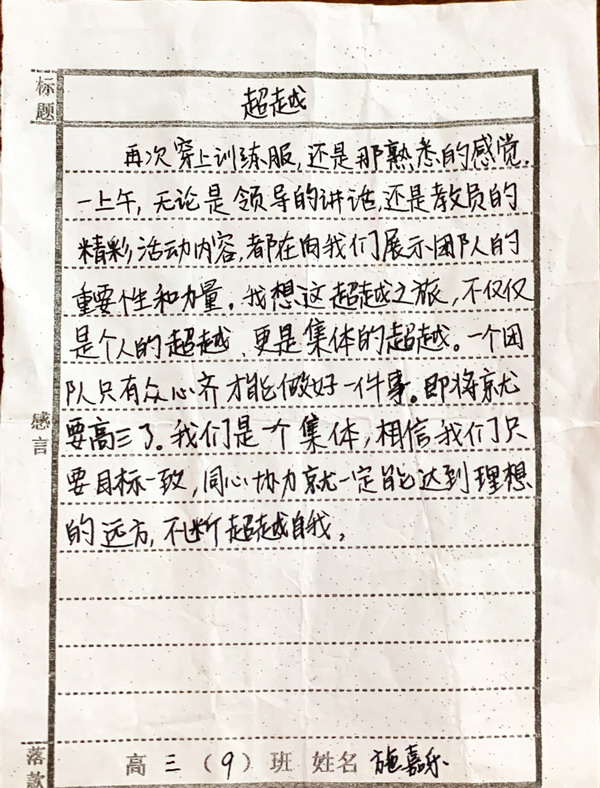 标题
超越
再次穿上训练服,还是那熟悉的感觉.
一上午,无论是领导的讲话,还是教员的
精彩活动内容,都在向我们展示团队的
重要性和力量。我想这超越之旅,不仅仅
是个人的超越、更是集体的超越。一个团
队只有众心齐才能做好一件事。即将就
要高三了。我们是一个集体,相信我们只
要目标一致,同心协力就一定能达到理想
的远方,不断超越自我。
感言
落款
高三(9)班 姓名 施嘉乐